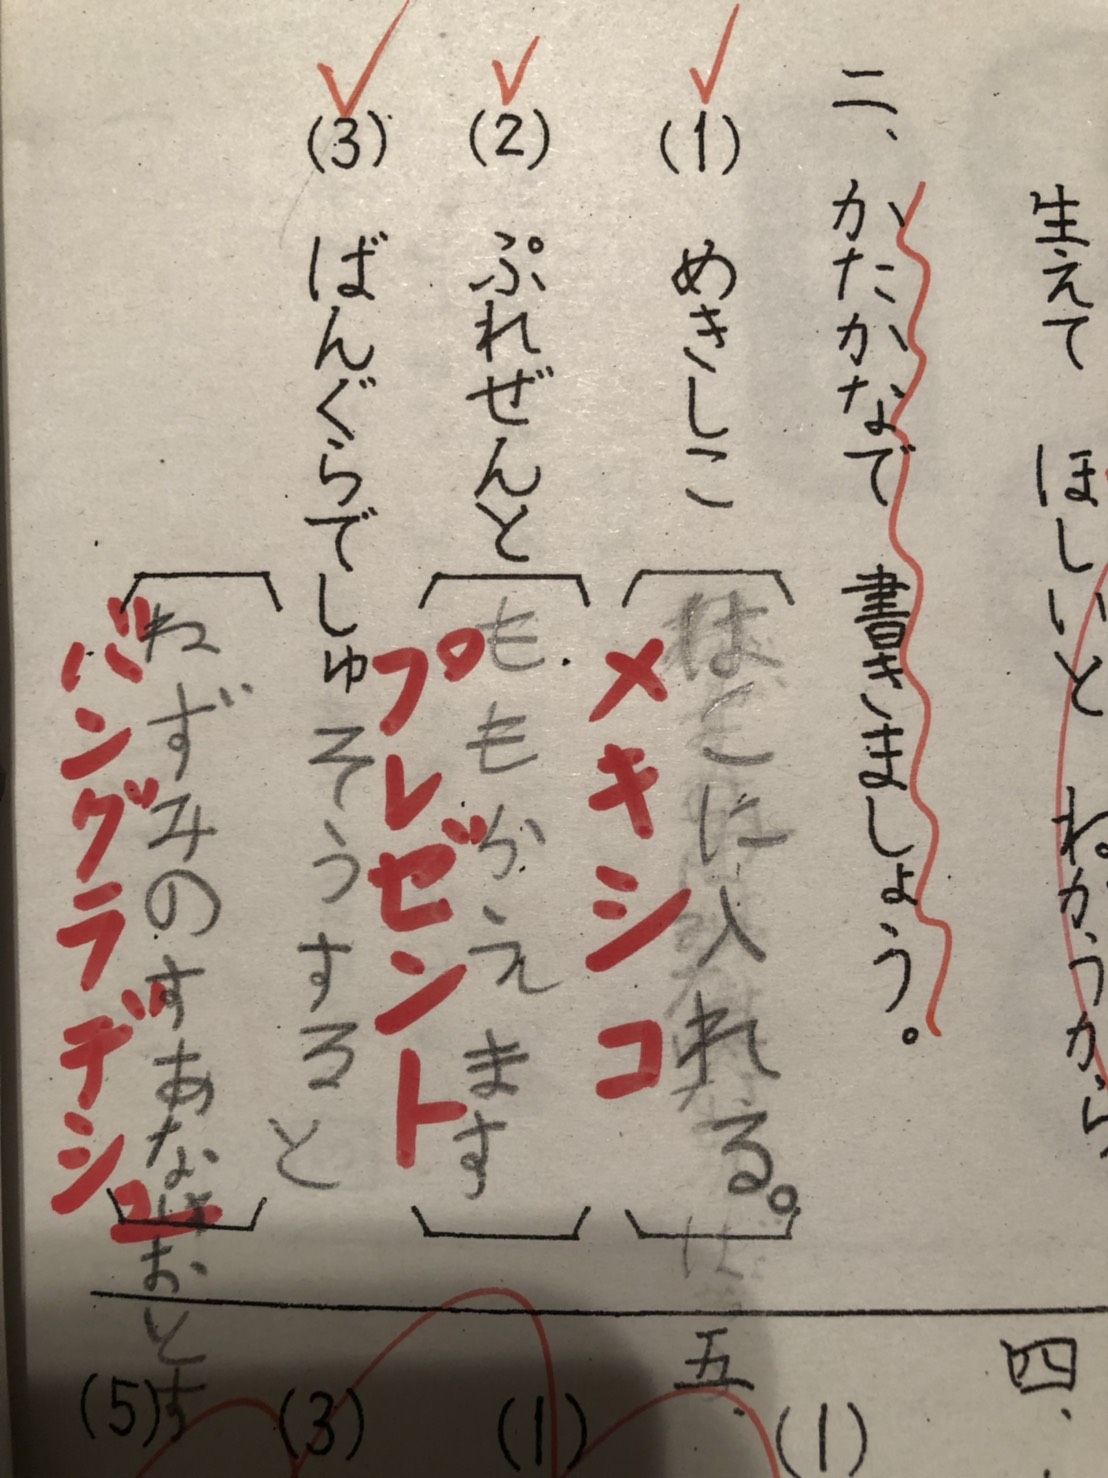 生えて ほしいと ねがうから
二、かたかなで 書きましょう。
(1) めきしこ
はこに入れる。
メキシコ
(2) ぷれぜんと
ももかえます
プレゼント
(3) ばんぐらでしゅ
そうすると
ねずみのすあなはおとす
バングラデシュ
四、
(1)
五、
(1)
(3)
(5)